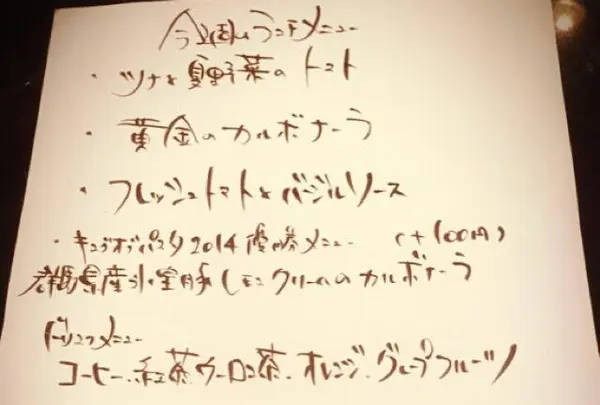 今週のランチメニュー
・ツナと夏野菜のトマト
・黄金のカルボナーラ
・フレッシュトマトとバジルソース
・キングオブパスタ2014優勝メニュー (+100円)
群馬県産氷室豚レモンクリームのカルボナーラ
ドリンクメニュー
コーヒー、紅茶、ウーロン茶、オレンジ、グレープフルーツ